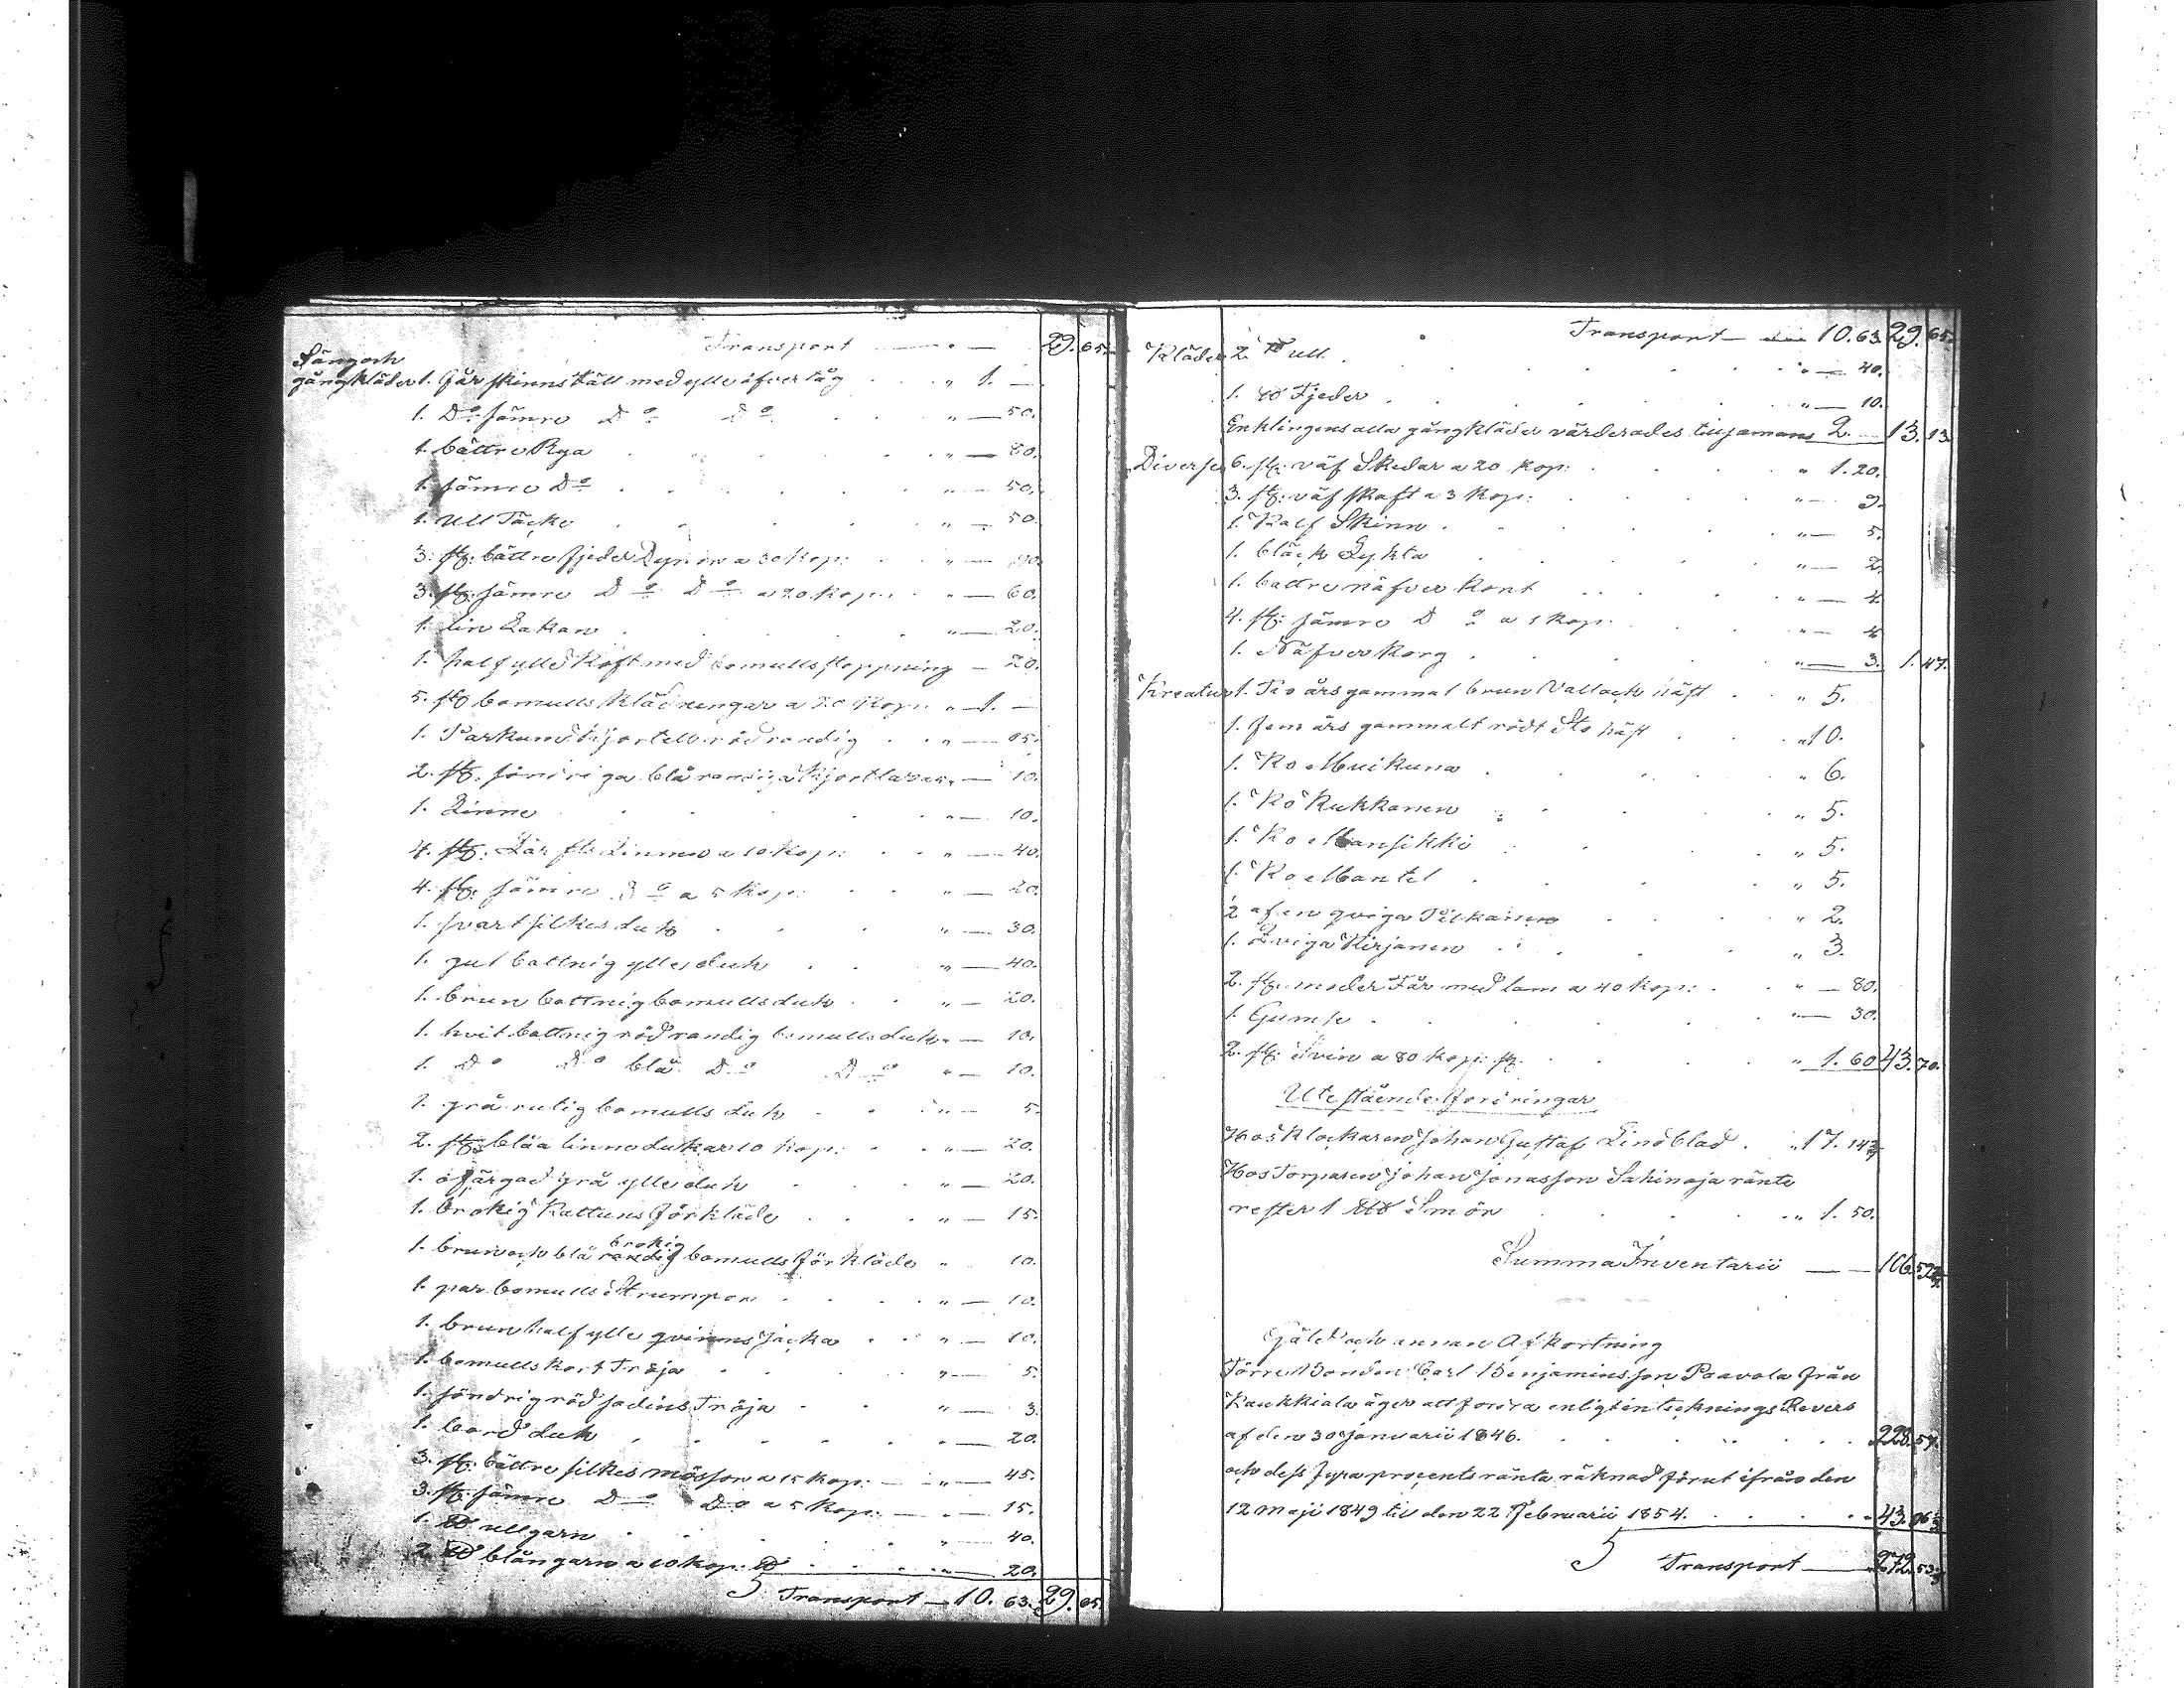 Transport — 29. 65.
Säng och
gångkläder 1. Fårskinns täll med ylle öfvertåg " 1. —
1. Do sämre Do Do " — 50.
1. bättre Rya " — 80.
1. sämre Do " — 50.
1. Ull Täcke " — 50.
3. st. bättre fjeder Dynor a 30 kop: " — 90.
3. st. sämre Do Do a 20 kop: " — 60.
1. Lin Lakan " — 20.
1. half ylle Koft med bomulls stoppning — 20.
5. st. bomulls Klädningar a 20 Kop: " 1. —
1. Parkums Kjortell rödrandig " —
2. st. söndriga blårandiga Kjortlar " — 10.
1. Linne " — 10.
4. st. Lärfts Linnen a 10 Kop: " — 40.
4. st. sämre Do a 5 Kop: " — 20.
1. svart silkes duk " — 30.
1. gul bottnig ylles duk " — 40.
1. brun bottnig bomulls duk " — 20.
1. hvit bottnig röd randig bomulls duk " — 10.
1. Do Do blå Do Do " — 10.
1. grå rutig bomulls duk " — 5.
2. st. blåa linne dukar 10 kop: " — 20.
1. ofärgad grå ylle duk " — 20.
1. brokig Kattuns förkläde " — 15.
brokig
1. brun och blå randig bomulls förkläde " 10.
1. par bomulls Strumpor " — 10.
1. brun half ylle qvinns jacka " — 10.
1. bomulls kort Tröja " — 5.
1. söndrig röd sadins Tröja " — 3.
1. bord duk " — 20.
3. st. bättre silkes mössor a 15 kop: — " — 45.
3. st. sämre Do Do a 5 kop: — " — 15.
1. ℔ ullgarn " — 40.
2. ℔ blångarn a 10 kop: ℔ " — 20.
Transport — 10. 63. 29. 65.
Transport — 10. 63. 29. 65.
Kläder 2. ℔ ull " — 40.
1. ℔ Fjeder " — 10.
Enklingens alla gångkläder värderades tillsamans 2. — 13. 13
Diverse 6. st: väf Skedar a 20 kop: " 1. 20.
3. st: väf skaft a 3 kop: " — 9.
1. Kalf Skinn " — 5.
1. bläck Lykta " — 2.
1. bättre näfver Kont " — 4.
4. st: sämre Do a 1 kop: " — 4
1. Näfver Korg " — 3. 1. 47.
Kreatur 1. Tio års gammal brun Vallach häst " 5.
1. Fem års gammalt rödt Sto häst " 10.
1. Ko Muikuna " 6.
1. Ko Kukkanen " 5.
1. Ko Mansikki " 5.
1. Ko Mantel " 5.
½ af en qviga " 2.
1. Qviga Kirjanen " 3.
2. st: moder Får med lam a 40 kop: " — 80.
1. Gumse " — 30.
2. st: Svin a 80 kop: st. " 1. 60 43. 70.
Utestående Fordringar
Hos Klockaren Johan Gustaf Lindblad " 17. 14
Hos Torparen Johan Jonasson Sahinoja ränte
rester 1 L℔ Smör " 1. 50.
Summa Inventarii — 106.
Gäld och annan Afkortning
Förre Bonden Carl Benjaminsson Paavola från
Kaukkiala äger att fordra enligt intecknings Revers
af den 30 Januarii 1846. 228. 57.
och dess fyra procents ränta räknad förut ifrån den
12 Maji 1849 till den 22 Februarii 1854. 43.
Transport — 272.